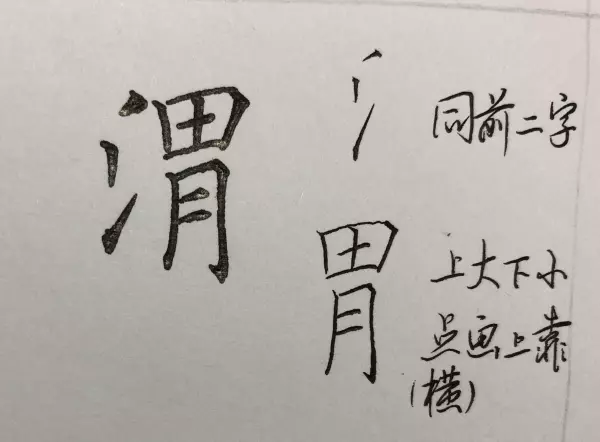 渭
氵 同前二字
胃 上大下小
点画上靠
(横)